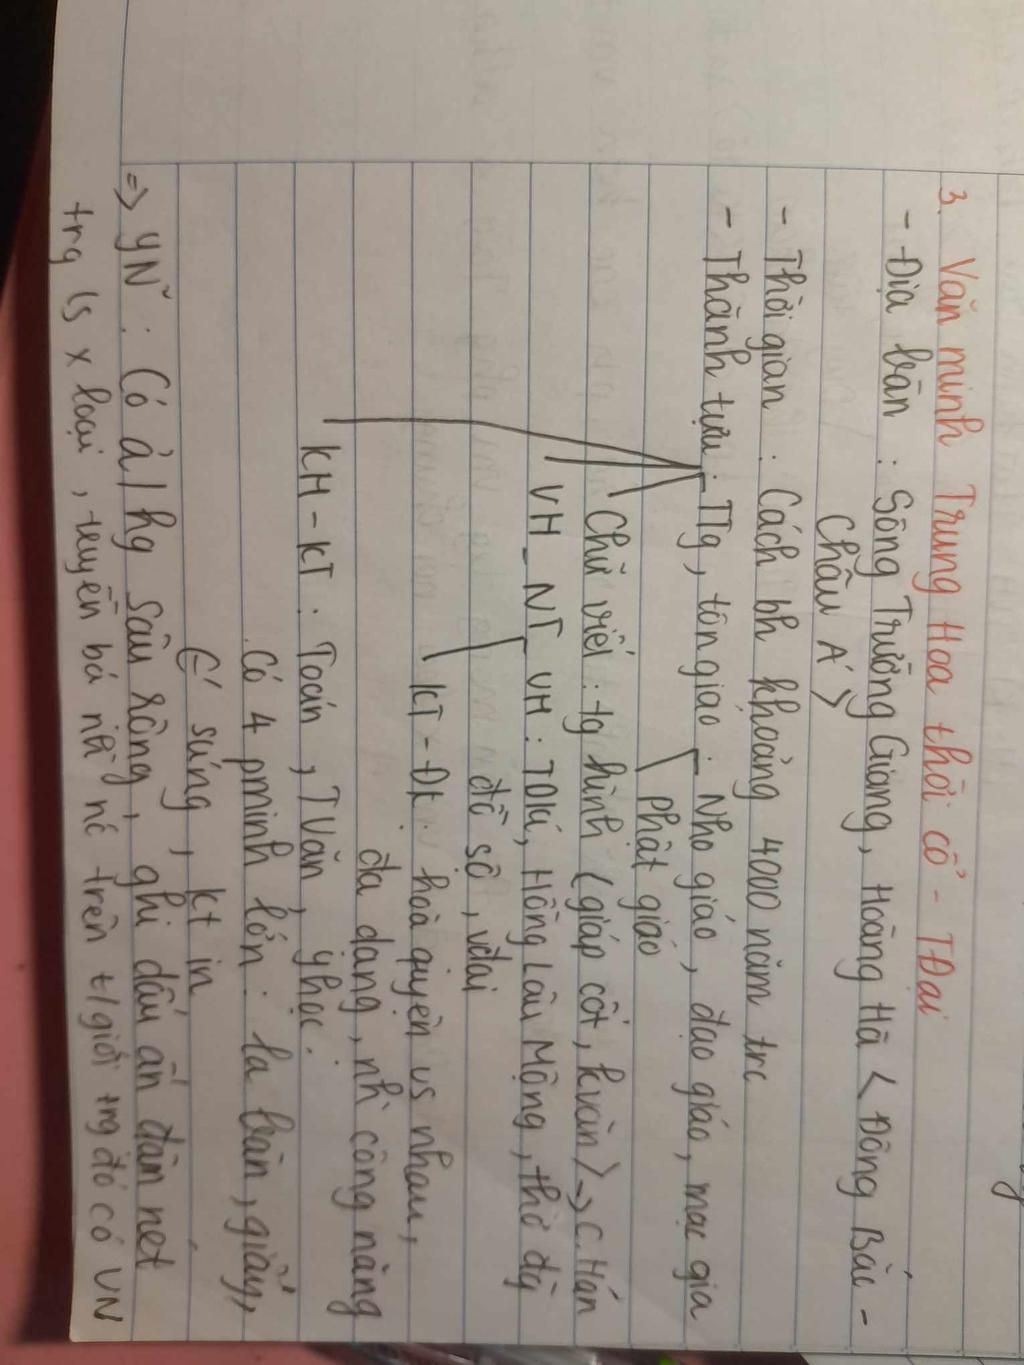 3. Văn minh Trung Hoa thời cổ - TĐại
- Địa bàn : Sông Trường Giang, Hoàng Hà < Đông Bắc -
Châu Á >
- Thời gian : Cách bh khoảng 4000 năm trc
- Thành tựu : TTg, tôn giáo : Nho giáo, đạo giáo, mạc gia
Phật giáo
Chữ viết : tg hình (giáp cốt, kvăn) => C. Hán
VH - NT VH : TQKí, Hồng Lâu Mộng, thơ đg
đồ sộ, vđại
KT - ĐK : hoà quyện vs nhau,
đa dạng, nh` công năng
KH - KT : Toán, TVăn, yhọc.
Có 4 pminh lớn : la bàn, giấy,
súng, kt in
=> YN~ : Có a/hg sâu rộng, ghi dấu ấn đậm nét
trg ls x loại, truyền bá nề nó trên t/giới trg đó có VN